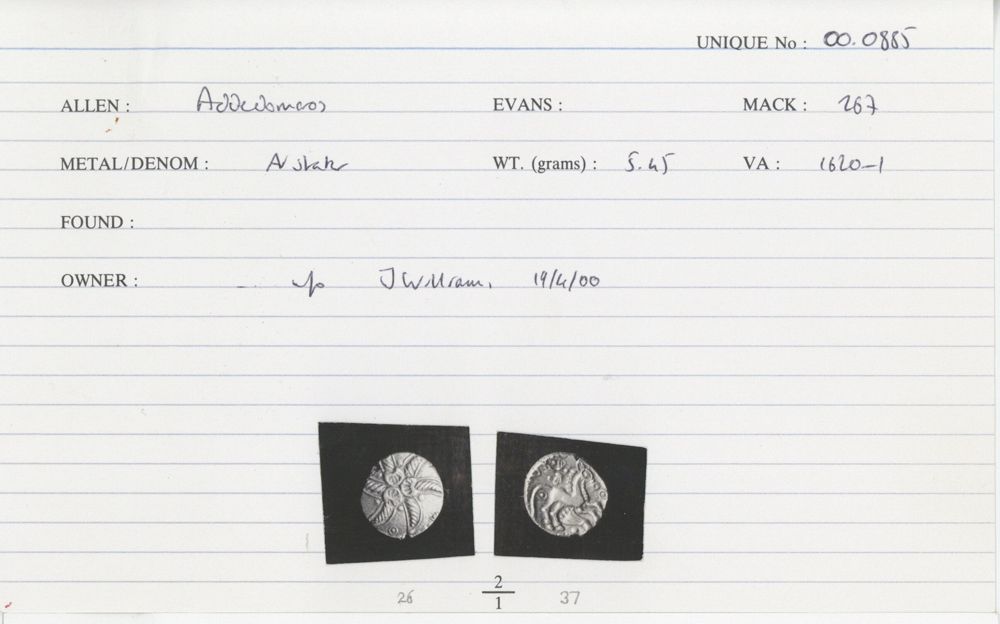 UNIQUE No : 00.0885
ALLEN : Addedomaros EVANS : MACK : 267
METAL/DENOM : AV stater WT. (grams) : 5.45 VA : 1620-1
FOUND :
OWNER : J William, 19/4/00
2
26 37
1